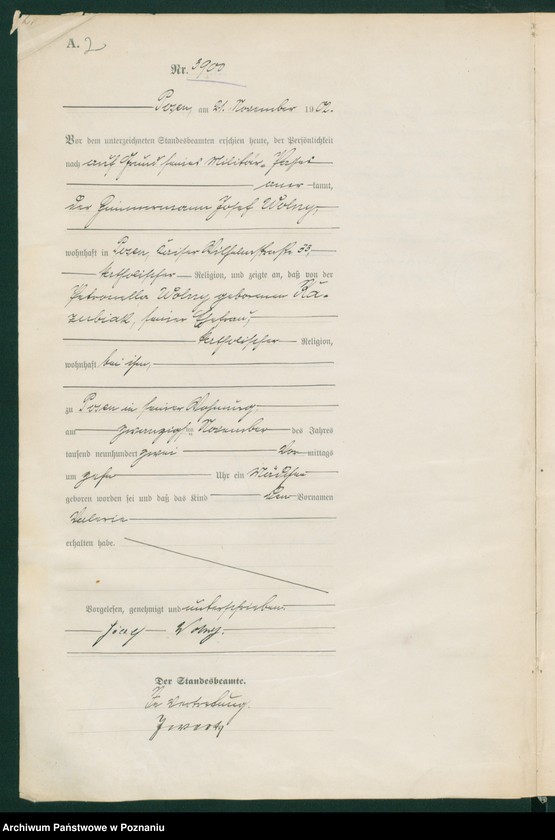 A. 2
Nr. 3903
Posen, am 21. November 1902.
Vor dem unterzeichneten Standesbeamten erschien heute, der Persönlichkeit
nach auf Grund seines Militär-Passes
aner kannt,
der Zimmermann Josef Wolny,
wohnhaft in Posen, Kaiser Wilhelmstraße 33,
katholischer Religion, und zeigte an, daß von der
Petronella Wolny geborenen Ka-
zubiak, seiner Ehefrau,
katholischer Religion,
wohnhaft bei ihm,
zu Posen in seiner Wohnung,
am zwanzigsten November des Jahres
tausend neunhundert zwei Vor mittags
um zehn Uhr ein Mädchen
geboren worden sei und daß das Kind den Vornamen
Valerie
erhalten habe.
Vorgelesen, genehmigt und unterschrieben.
Wolny.
Der Standesbeamte.
In Vertretung.
Archiwum Państwowe w Poznaniu